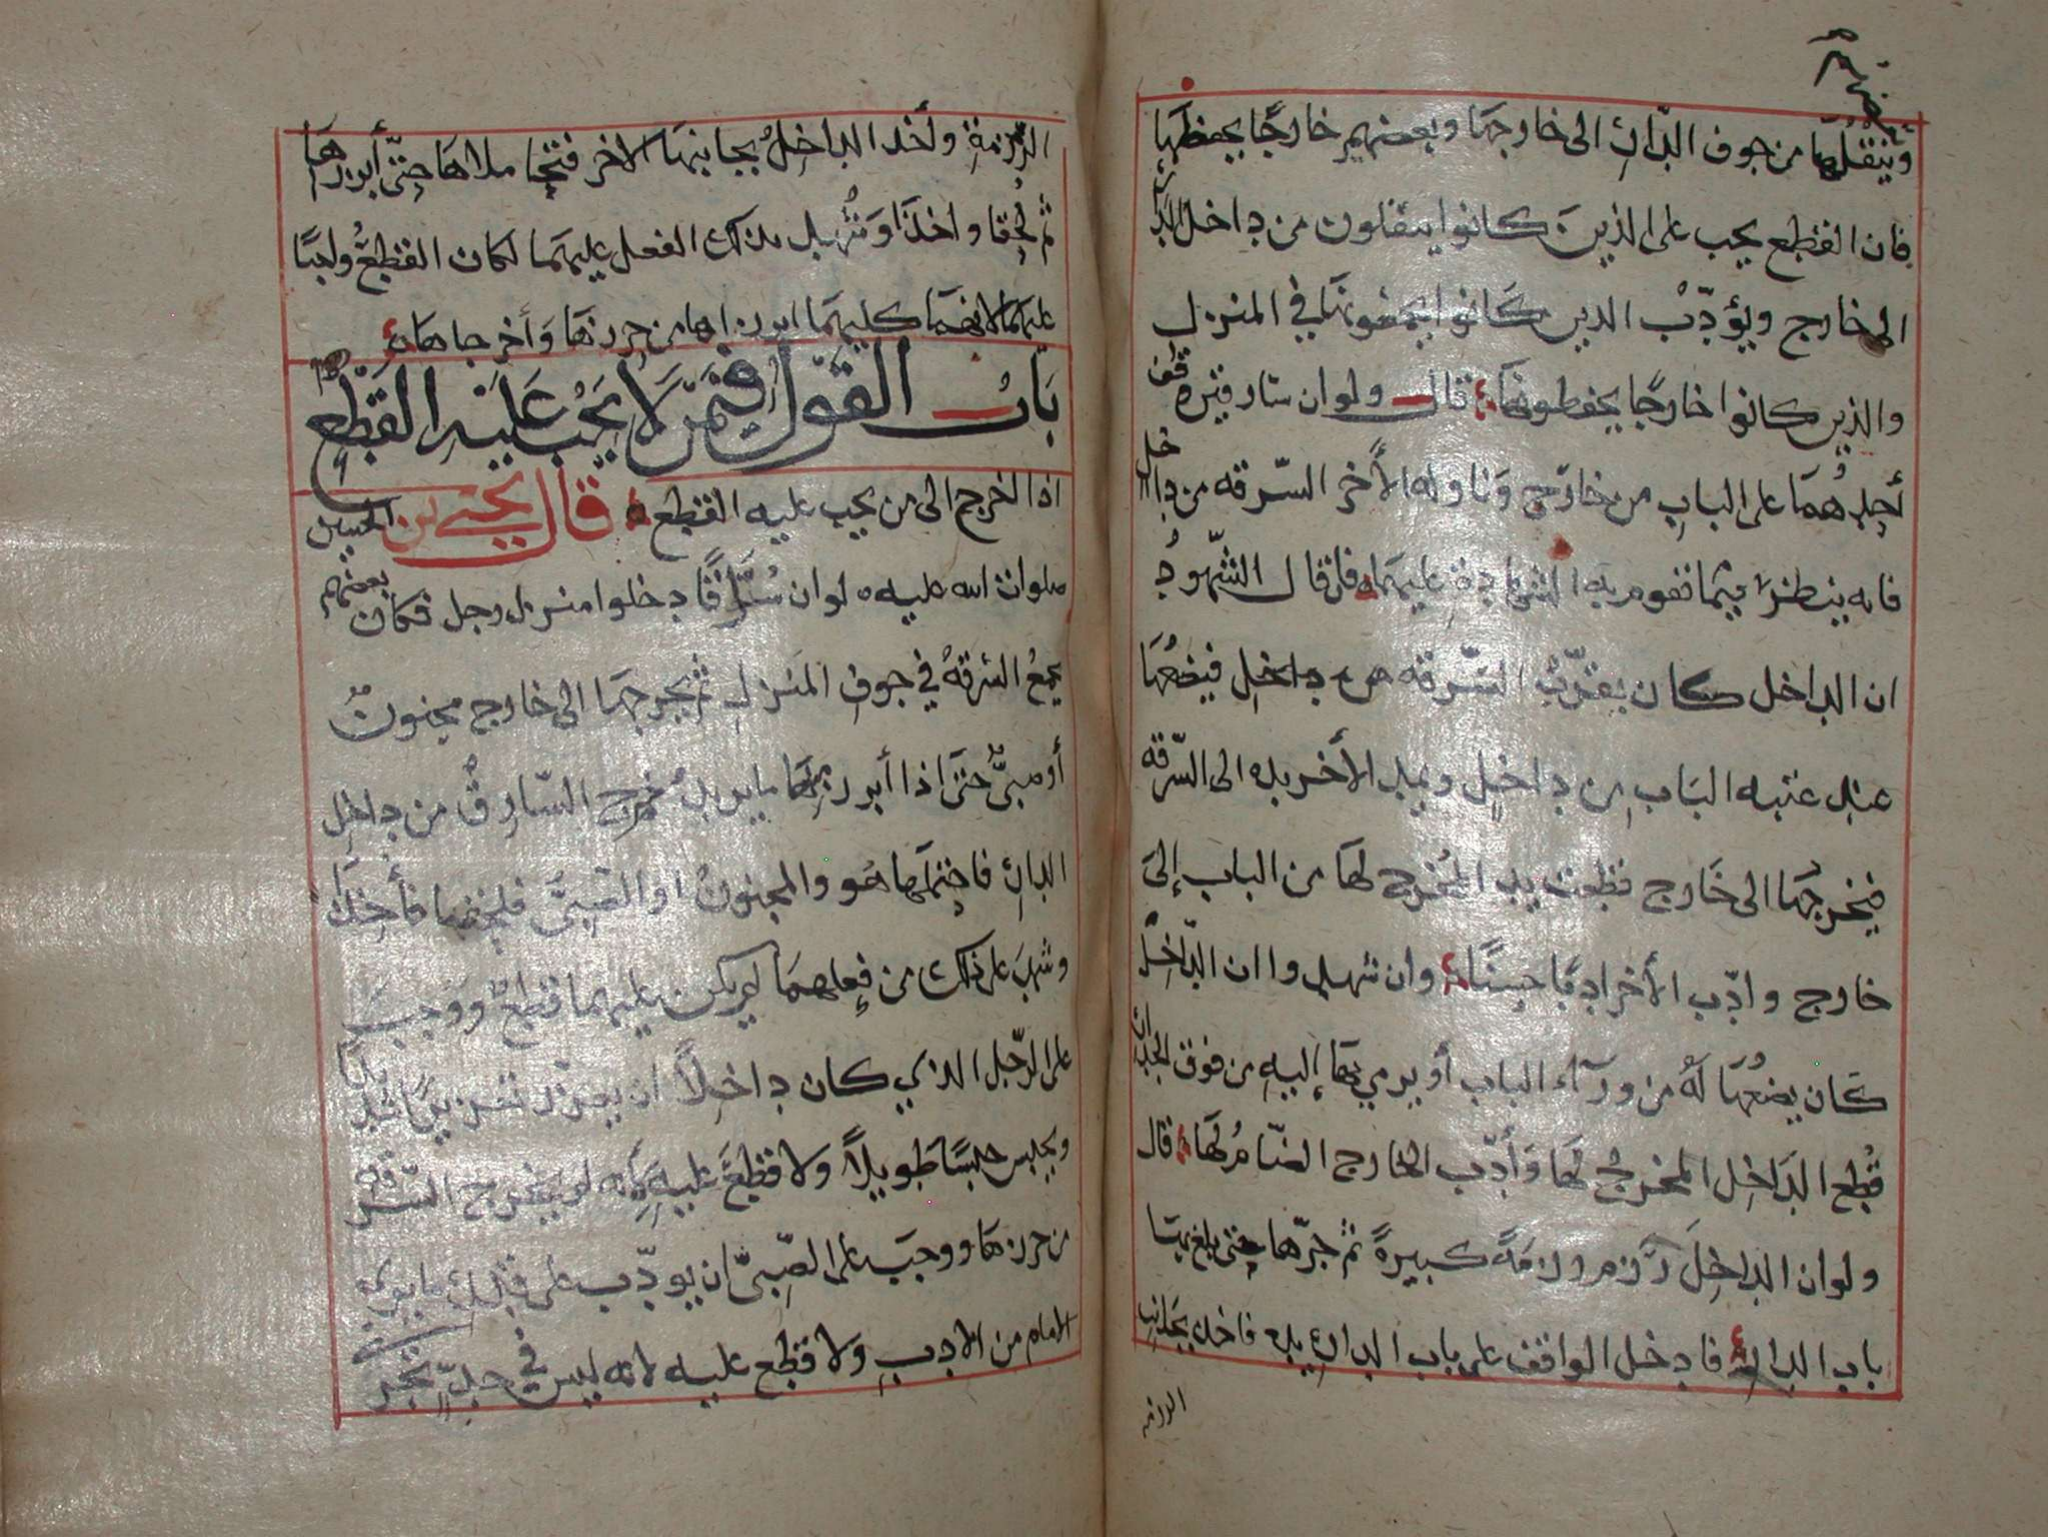 بعضهم
وينقلها من جوف الدار الى خارجها وبعضهم خارجا يحفظها
فان القطع يجب على الذين كانوا ينقلون من داخل الدار
الى خارج ويؤدب الذين كانوا يجمعونها في المنزل
والذين كانوا خارجا يحفظونها قال ولو ان سارقين وقف
أحدهما على الباب من خارج وناوله الأخر السرقه من داخل
فانه ينظر فيما تقوم به الشهادة عليهما فان قال الشهود
ان الداخل كان يقرب السرقه من داخل فيضعها
عند عتبه الباب من داخل ويمد الأخر يده الى السرقه
فيخرجها الى خارج قطعت يد المخرج لها من الباب إلى
خارج وادب الأخر ادبا حسنا وان شهدوا ان الداخل
كان يضعها له من ورآء الباب أو يرمي بها إليه من فوق الجدار
قطع الداخل المخرج لها وأدب الخارج الضام لها قال
ولو ان الداخل رزم رزمة كبيرة ثم جرها حتى بلغ بها
باب الدار فادخل الواقف على باب الدار يده فاخذ بجانب
الرزمه
الرزمة وأخذ الداخل بجانبها الاخر فتخاملاها حتى أبرزاها
ثم لحقا واخذا وشهد بذلك الفعل عليهما لكان القطع واجبا
عليهما لانهما كليهما ابرزاها من حرزها وأخرجاها
باب القول فيمن لا يجب عليه القطع
اذا اخرج الى من يجب عليه القطع قال يحيى بن الحسين
صلوات الله عليه لو ان سراقا دخلوا منزل رجل فكان بعضهم
يجمع السرقه في جوف المنزل ثم يخرجها الى خارج مجنون
أو صبي حتى اذا أبرزها مما يريد مخرج السارق من داخل
الدار فاحتملها هو والمجنون او الصبي فلحقا فأخذا
وشهد على ذلك من فعلهما لم يكن عليهما قطع ووجب
على الرجل الذي كان داخلا ان يعزر تعزيرا شديدا
ويحبس حبسا طويلا ولا قطع عليه لانه لم يخرج السرقه
من حرزها ووجب على الصبي ان يودب على قدر ما يرى
الامام من الادب ولا قطع عليه لانه ليس في حد